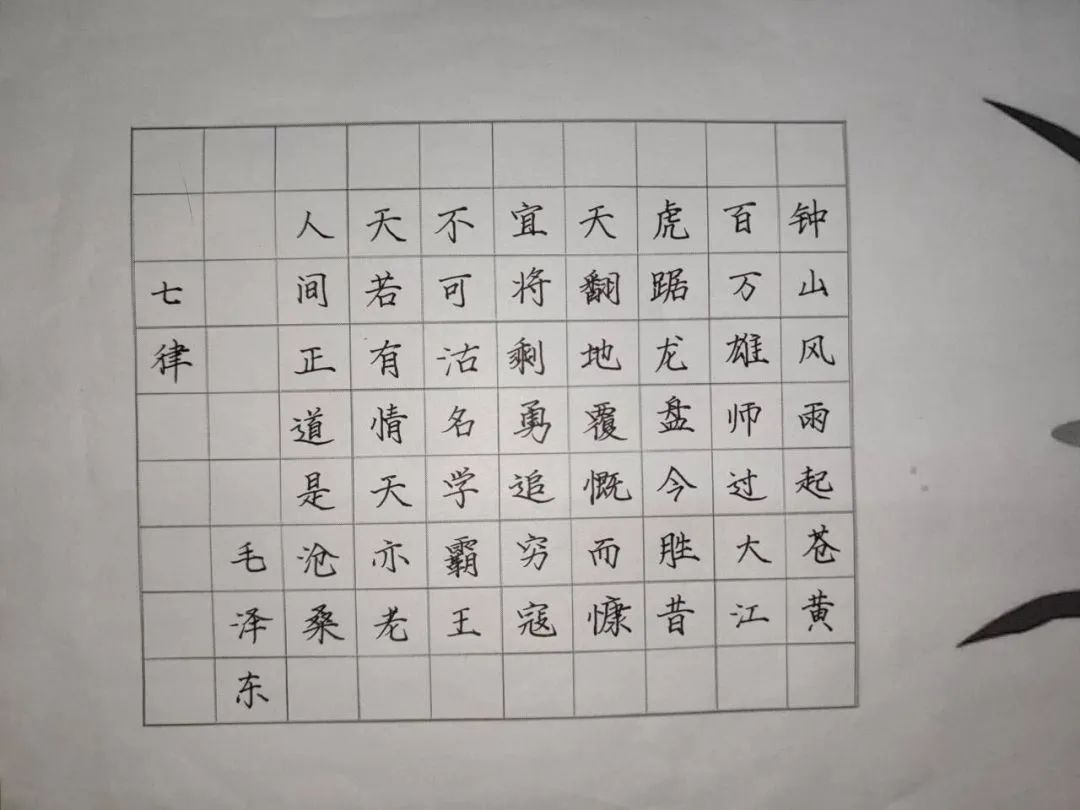 钟山风雨起苍黄
百万雄师过大江
虎踞龙盘今胜昔
天翻地覆慨而慷
宜将剩勇追穷寇
不可沽名学霸王
天若有情天亦老
人间正道是沧桑
毛泽东
七律